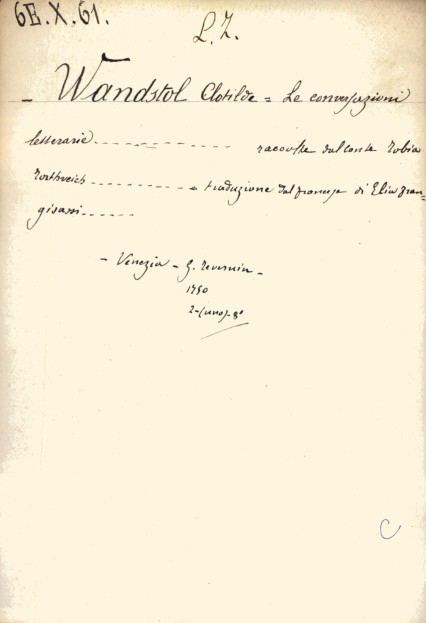 6E.X.61.
L.Z.
- Wandstol Clotilde = Le conversazioni
letterarie - - - - - - - - - - raccolte dal conte Tobia
Northreich - - - - - - - - - traduzione dal francese di Elia Fran=
gisassi - - - - -
- Venezia - G. Tevernin -
1750
2-(uno)-8°
C